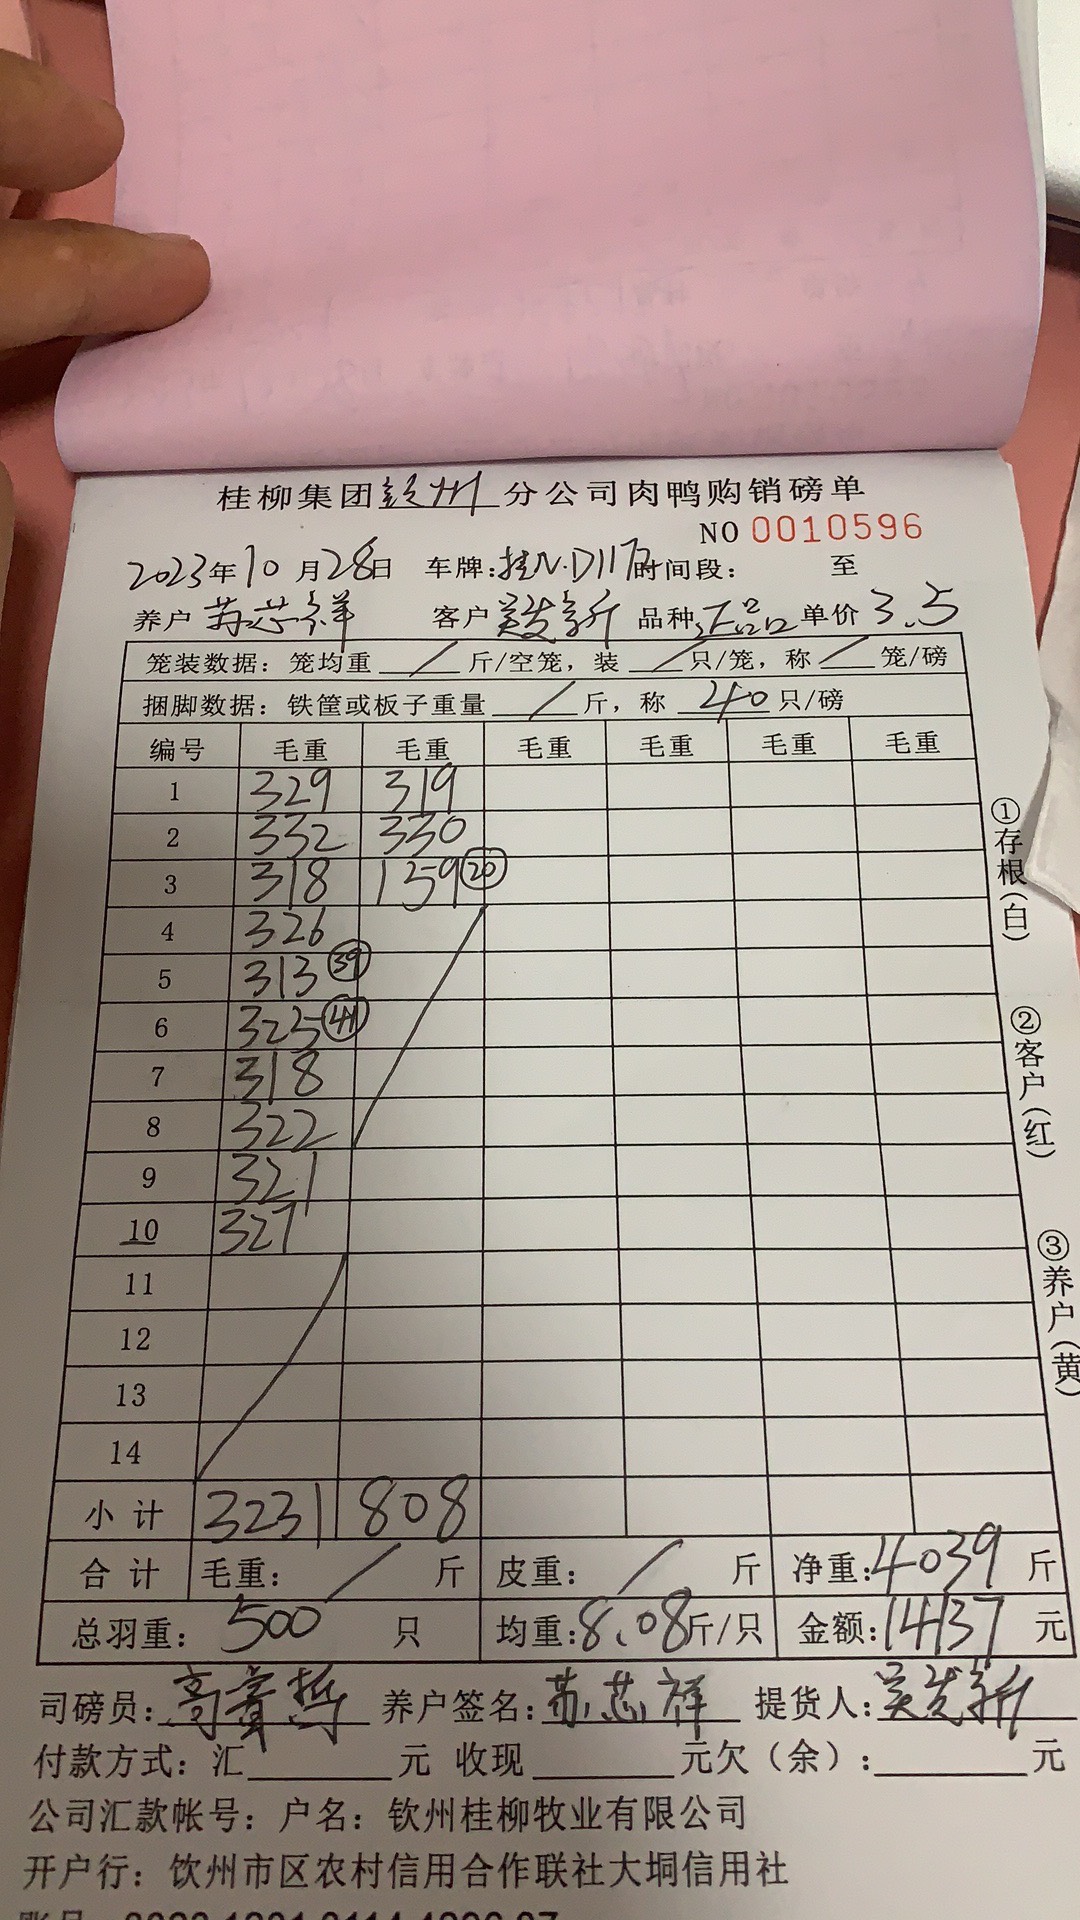 桂柳集团钦州分公司肉鸭购销磅单
NO 0010596
2023年10月28日 车牌:桂N·D117 时间段: 至
养户 苏芯祥 客户 吴发新 品种 正品 单价 3.5
笼装数据: 笼均重 / 斤/空笼, 装 / 只/笼, 称 / 笼/磅
捆脚数据: 铁筐或板子重量 / 斤, 称 40 只/磅
编号 毛重 毛重 毛重 毛重 毛重 毛重
1 329 319
2 332 330
3 318 159 ⑳
4 326
5 313 ㊴
6 325 ㊶
7 318
8 322
9 321
10 327
11
12
13
14
小计 3231 808
合计 毛重: / 斤 皮重: / 斤 净重:4039 斤
总羽重: 500 只 均重:8.08斤/只 金额:14137 元
司磅员: 高 养户签名: 苏芯祥 提货人: 吴发新
付款方式: 汇 元 收现 元欠(余): 元
公司汇款帐号: 户名: 钦州桂柳牧业有限公司
开户行: 钦州市区农村信用合作联社大垌信用社
①存根(白)
②客户(红)
③养户(黄)